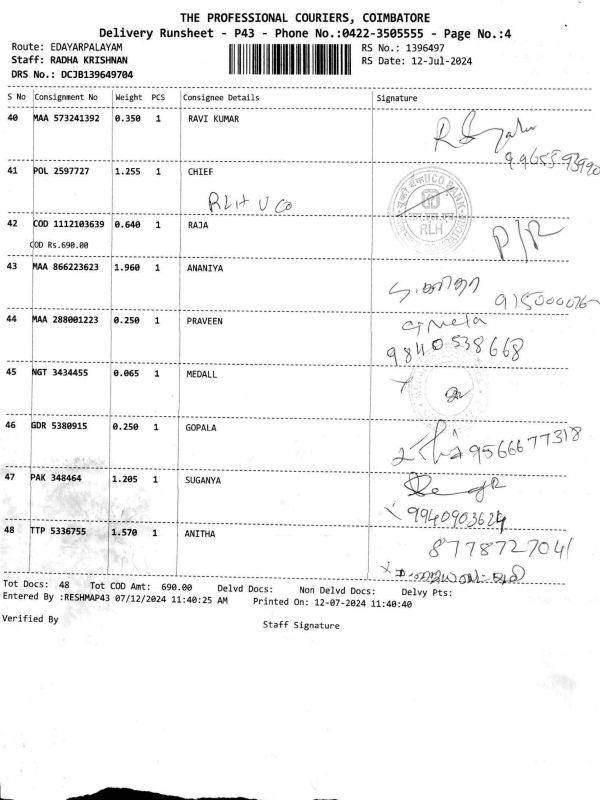 THE PROFESSIONAL COURIERS, COIMBATORE
Delivery Runsheet - P43 - Phone No.:0422-3505555 - Page No.:4
Route: EDAYARPALAYAM RS No.: 1396497
Staff: RADHA KRISHNAN RS Date: 12-Jul-2024
DRS No.: DCJB139649704
S No Consignment No Weight PCS Consignee Details Signature
40 MAA 573241392 0.350 1 RAVI KUMAR
41 POL 2597727 1.255 1 CHIEF
RLH UCO
RLH
42 COD 1112103639 0.640 1 RAJA
P/R
COD Rs.690.00
43 MAA 866223623 1.960 1 ANANIYA
44 MAA 288001223 0.250 1 PRAVEEN
9840538668
45 NGT 3434455 0.065 1 MEDALL
46 GDR 5380915 0.250 1 GOPALA
9566677318
47 PAK 348464 1.205 1 SUGANYA
9940903624
48 TTP 5336755 1.570 1 ANITHA
8778727041
Tot Docs: 48 Tot COD Amt: 690.00 Delvd Docs: Non Delvd Docs: Delvy Pts:
Entered By :RESHMAP43 07/12/2024 11:40:25 AM Printed On: 12-07-2024 11:40:40
Verified By Staff Signature